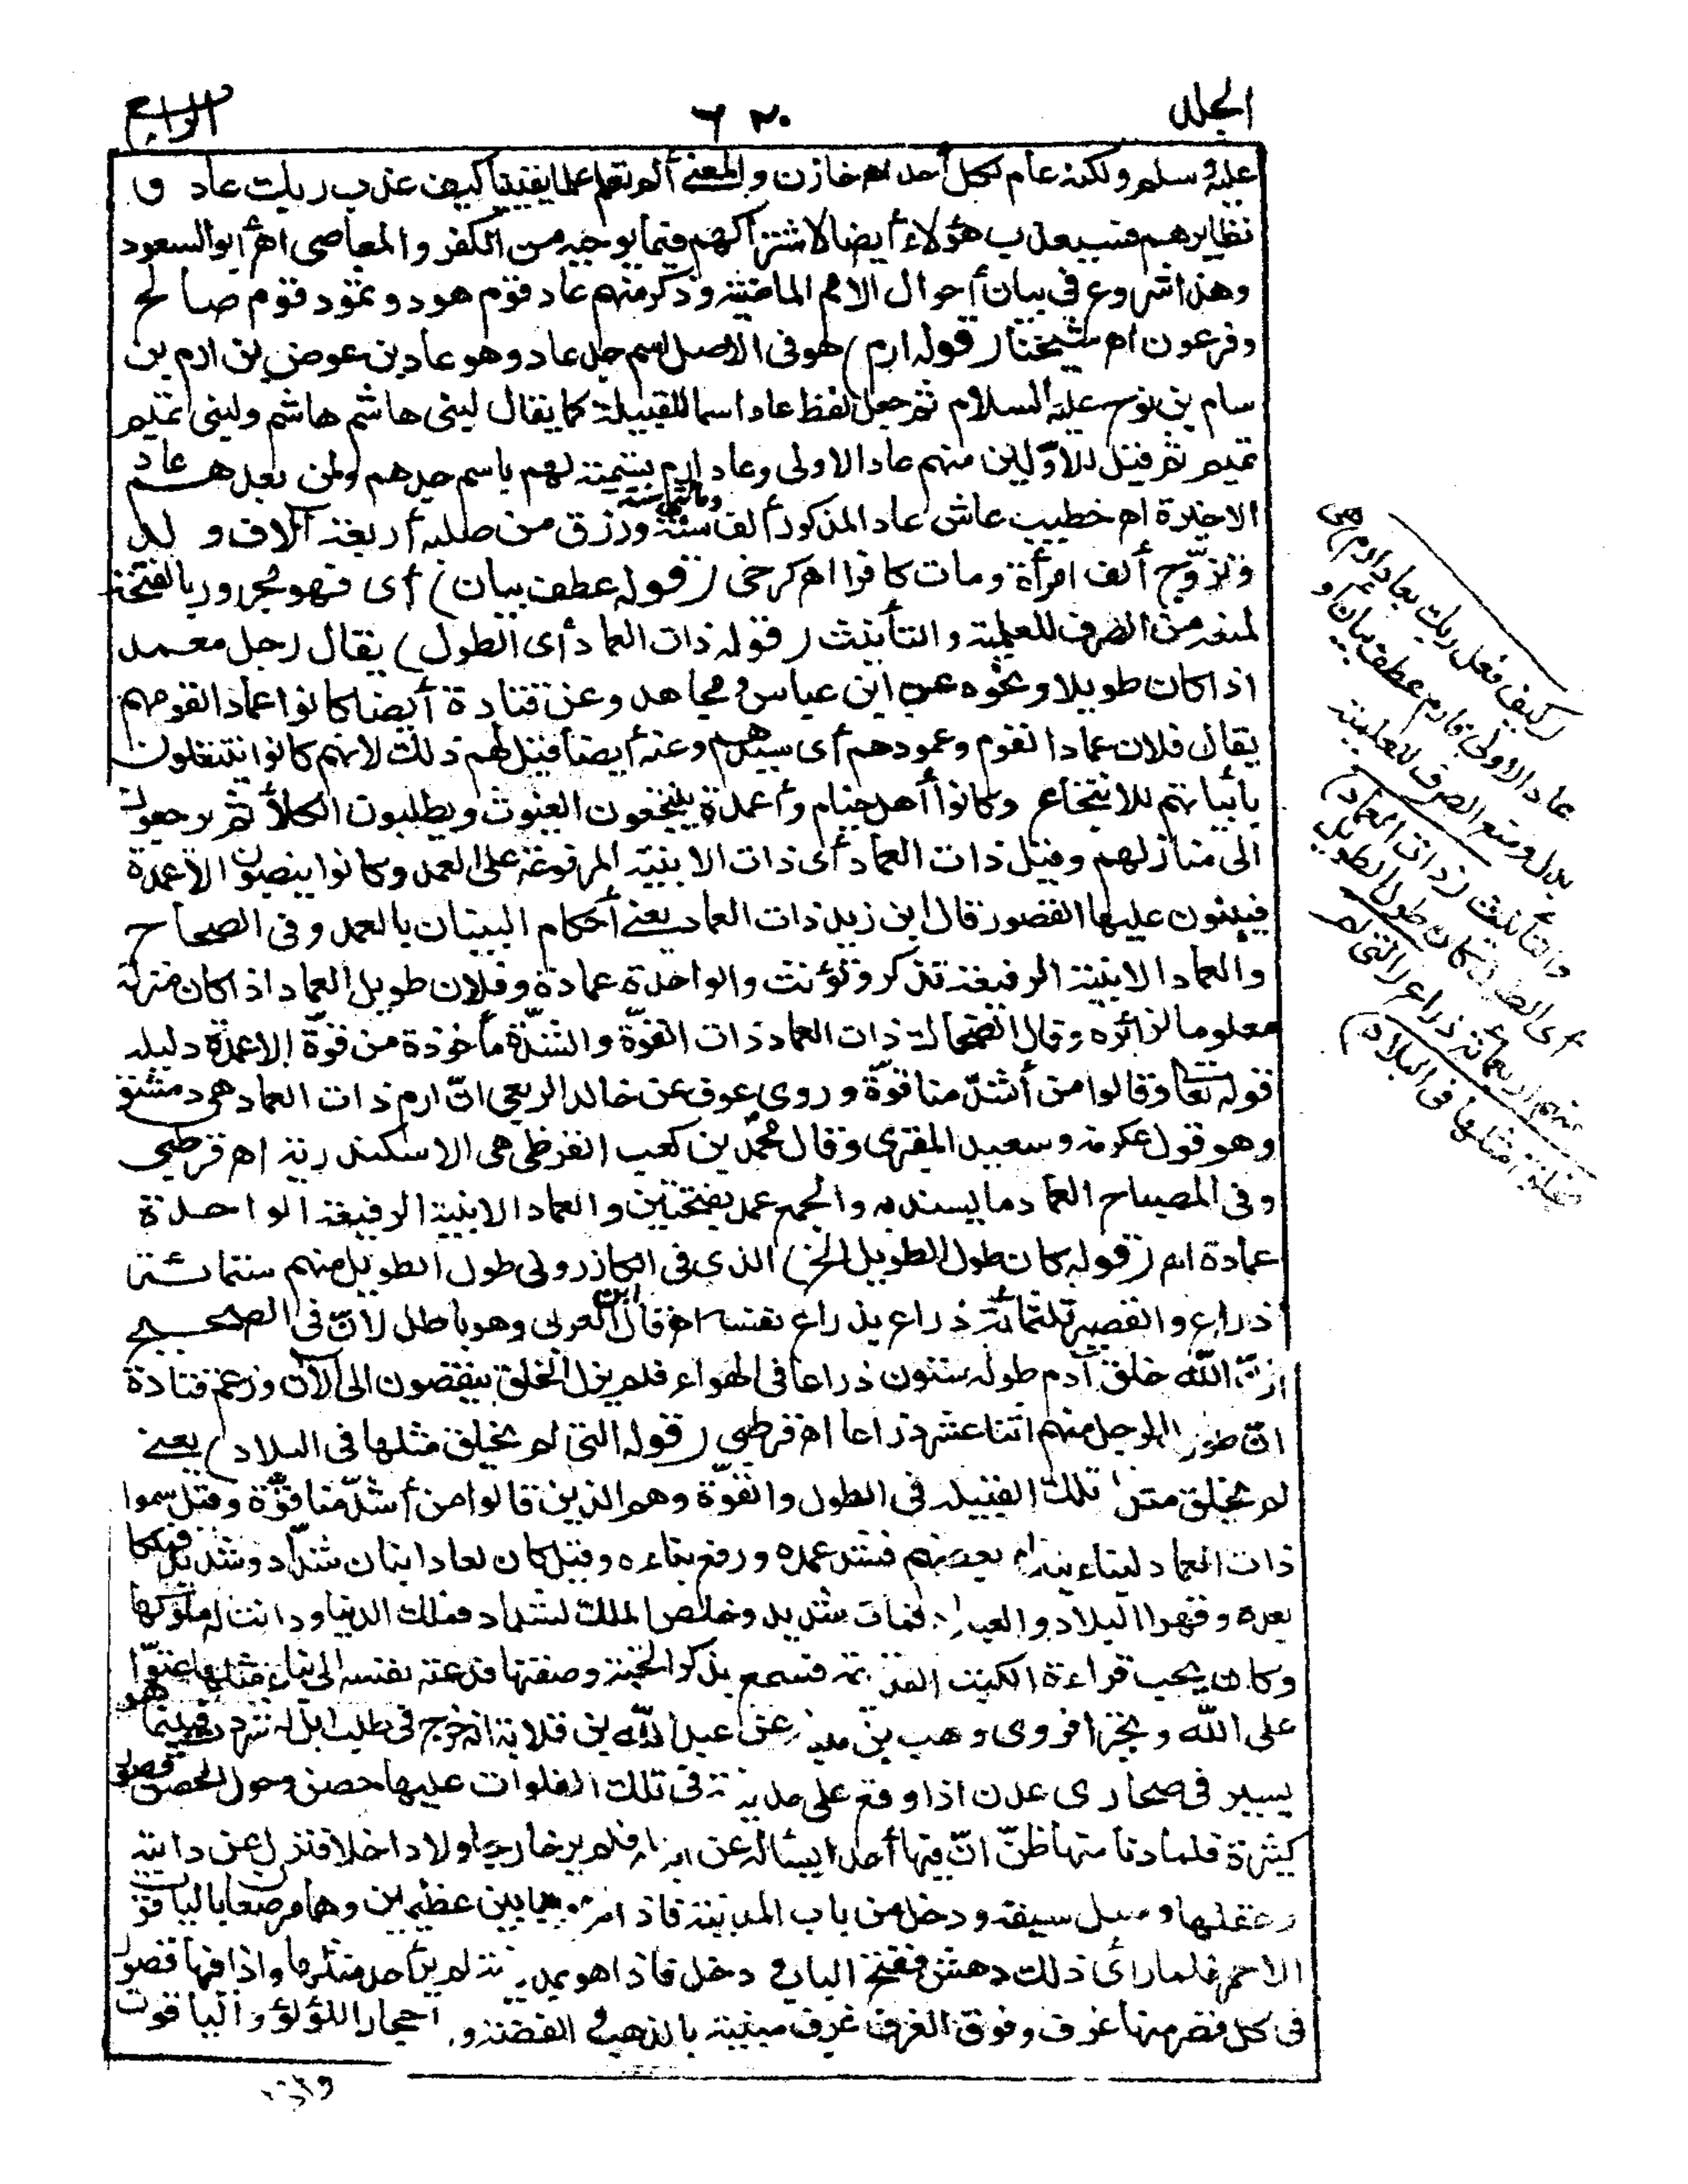 الجلد
٦٢٠
الرابع
عليه وسلم ولكنه عام لكل أحد اهـ خازن والمعنى ألم تعلم علما يقينيا كيف عذب ربك عاد و
نظايرهم فسيعذب هؤلاء أيضا لاشتراكهم فيما يوجبه من الكفر والمعاصى اهـ أبو السعود
وهذا شروع فى بيان أحوال الامم الماضية وذكر منهم عاد قوم هود وثمود قوم صالح
وفرعون اهـ شيخنا (قوله ارم) هو فى الاصل اسم جد عاد وهو عاد بن عوض بن ارم بن
سام بن نوح عليه السلام ثم جعل لفظ عاد اسما للقبيلة كما يقال لبنى هاشم هاشم ولبنى تميم
تميم ثم قيل للاوّلين منهم عاد الاولى وعاد ارم بتسمية لهم باسم جدهم ولمن بعدهم عاد
الاخيرة اهـ خطيب عاش عاد المذكور ألف سنة ومائتى سنة ورزق من صلبه أربعة آلاف ولد
وتزوّج ألف امرأة ومات كافرا اهـ كرخى (قوله عطف بيان) أى فهو مجرور بالفتحة
لمنعه من الصرف للعلمية والتأنيث (قوله ذات العماد أى الطول) يقال رجل معمد
اذا كان طويلا ونحوه عن ابن عباس ومجاهد وعن قتادة أيضا كانوا عمادا لقومهم
يقال فلان عماد القوم وعمودهم أى سيدهم وعنه أيضا قيل لهم ذلك لانهم كانوا ينتقلون
بأبياتهم للانتجاع وكانوا أهل خيام وأعمدة ينتجعون الغيوث ويطلبون الكلأ ثم يرجعون
الى منازلهم وقيل ذات العماد أى ذات الابنية المرفوعة على العمد وكانوا ينصبون الاعمدة
فيبنون عليها القصور قال ابن زيد ذات العماد يعنى أحكام البنيان بالعمد وفى الصحاح
والعماد الابنية الرفيعة تذكر وتؤنث والواحدة عمادة وفلان طويل العماد اذا كان منزله
معلوما لزائره وقال الضحاك ذات العماد ذات القوّة والشدّة مأخوذة من قوّة الاعمدة دليله
قوله تعا وقالوا من أشدّ منا قوّة وروى عوف عن خالد الربعى انّ ارم ذات العماد هى دمشق
وهو قول عكرمة وسعيد المقبرى وقال محمد بن كعب القرظى هى الاسكندرية اهـ قرطبى
وفى المصباح العماد ما يسند به والجمع عمد بفتحتين والعماد الابنية الرفيعة الواحدة
عمادة اهـ (قوله كان طول الطويل الخ) الذى فى الكازرونى طول الطويل منهم ستمائة
ذراع والقصير ثلثمائة ذراع بذراع نفسه اهـ قال ابن العربى وهو باطل لانّ فى الصحيح
انّ الله خلق آدم طوله ستون ذراعا فى الهواء فلم يزل الخلق ينقصون الى الآن وزعم قتادة
انّ طول الرجل منهم اثنا عشر ذراعا اهـ قرطبى (قوله التى لم يخلق مثلها فى البلاد) يعنى
لم يخلق مثل تلك القبيلة فى الطول والقوّة وهم الذين قالوا من أشدّ منا قوّة وقيل سموا
ذات العماد لبناء بناه بعضهم فشد عمده ورفع بناءه وقيل كان لعاد ابنان شدّاد وشديد فملكا
بعده وقهرا البلاد والعباد فمات شديد وخلص الملك لشداد فملك الدنيا ودانت له ملوكها
وكان يحب قراءة الكتب القديمة فسمع بذكر الجنة وصفتها فدعته نفسه الى بناء مثلها عتوّا
على الله وتجبرا فروى وهب بن منبه عن عبد الله بن قلابة انه خرج فى طلب ابل له شردت فبينما هو
يسير فى صحارى عدن اذا وقع على مدينة فى تلك الفلوات عليها حصن وحول الحصن قصور
كثيرة فلما دنا منها ظنّ انّ فيها أحدا يسأله عن ابله فلم ير خارجا ولا داخلا فنزل عن دابته
وعقلها وسل سيفه ودخل من باب المدينة فاذا هو ببابين عظيمين وهما مرصعان بالياقوت
الاحمر فلما رأى ذلك دهش ففتح الباب ودخل فاذا هو بمدينة لم ير أحد مثلها واذا فيها قصور
فى كل قصر منها غرف وفوق الغرف غرف مبنية بالذهب والفضة و أحجار اللؤلؤ والياقوت
(كيف فعل ربك بعاد ارم) هى
عاد الاولى فارم عطف بيان أو
بدل ومنع الصرف للعلمية
والتأنيث (ذات العماد)
أى الطول كان طول الطويل
منهم أربعمائة ذراع (التى لم
يخلق مثلها فى البلاد)